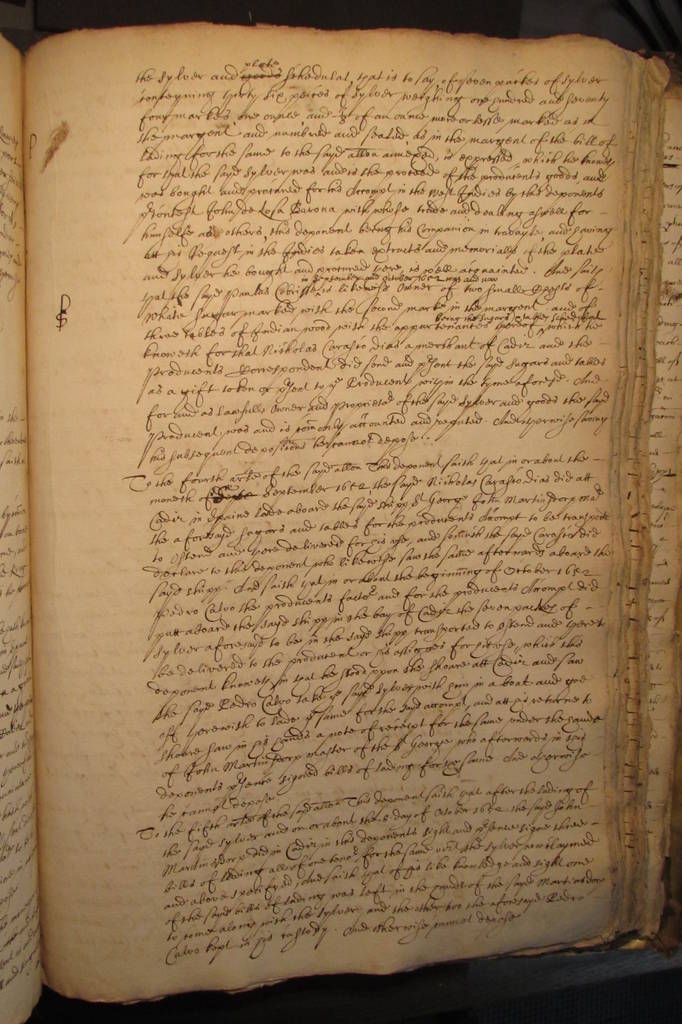 plate
the sylver and goods schedulat, that is to say, of seven packes of sylver
conteyning thirty six peeces of sylver weighing one hundred and seventy
four markes one ounce and ⅜ of an ounce more or lesse, marked as in
the margent and numbred and sealed as in the margent of the bill of
lading for the same to the sayd allon annexed, is expressed, which he knoweth
for that the sayd sylver was and is the proceed of the producents goods and
was bought and procured for his Accompt in the West Indies by this deponents
precontest John de Losa Barona with whose trade and dealing aswell for
himselfe as others, this deponent being his Companion in travayle and having
att his Request in the Indies taken extracts and memorialls of the plate
and sylver he bought and procured there, is well acquainted. And saith
in September and October 1652 and now
that the sayd Paulus is likewise owner of two small Chests of
white sugar marked with the second marke in the margent, and of
being the sugars &c schedulat
three tables of Indian wood with the appurtenances thereof, which he
knoweth for that Nicholas Carasto dias a merchant of Cadiz and the
Producents Correspondent did send and present the sayd sugars and tables
as a gift token or present to the Producent within the tyme aforesd. And
for and as lawfull Owner and Proprietor of the sayd sylver and goods the sayd
Producent was and is comonly accounted and reputed. And otherwise saving
his subsequent depositions hee cannot depose.
To the fourth arle of the sayd allon This deponent saith that in or about the
moneth of September 1652 the sayd Nicholas Carasto dias did att
Cadiz in Spaine lade aboard the sayd shipp St George John Martinsdorp Mr
the aforesayd sugars and tables for the producents Accompt to be transported
to Ostend and there delivered for his use, and soe much the sayd Carasto did
declare to this deponent who likewise saw the same afterwards aboard the
sayd shipp. And saith that in or about the beginning of October 1652
Pedro Calvo the producents factor and for the producents Accompt did
putt aboard the sayd shipp in the bay of Cadiz the seven packes of
sylver aforesayd to be in the sayd shipp transported to Ostend and there to
be delivered to the producent or his assignes for his use, which this
deponent knoweth in that he stood upon the shoare att Cadiz and saw
the sayd Pedro Calvo take the sayd sylver with him in a boat and goe
off therewith to lade the same for the sayd accompt, and att his returne to
shoare saw in his hands a note of receipt for the same under the hande
of John Martinsdorp master of the St George who afterwards in this
deponents presence signed bills of lading for the same And otherwise
he cannot depose
To the fifth arle of the sayd allon This deponent saith that after the lading of
the sayd sylver and on or about the 8 day of October 1652 the sayd John
Martinsdorp did in Cadiz in this deponents sight and presence signe three
bills of lading all of one tenor for the same vizt the sylver now claymed
and above specifyed, And saith that of his like knowledge and sight one
of the sayd bills of lading was left in the hands of the sayd Martinsdorp
to come alonge with the sylver, and the other two the aforesayd Pedro
Calvo kept in his custody. And otherwise cannot depose